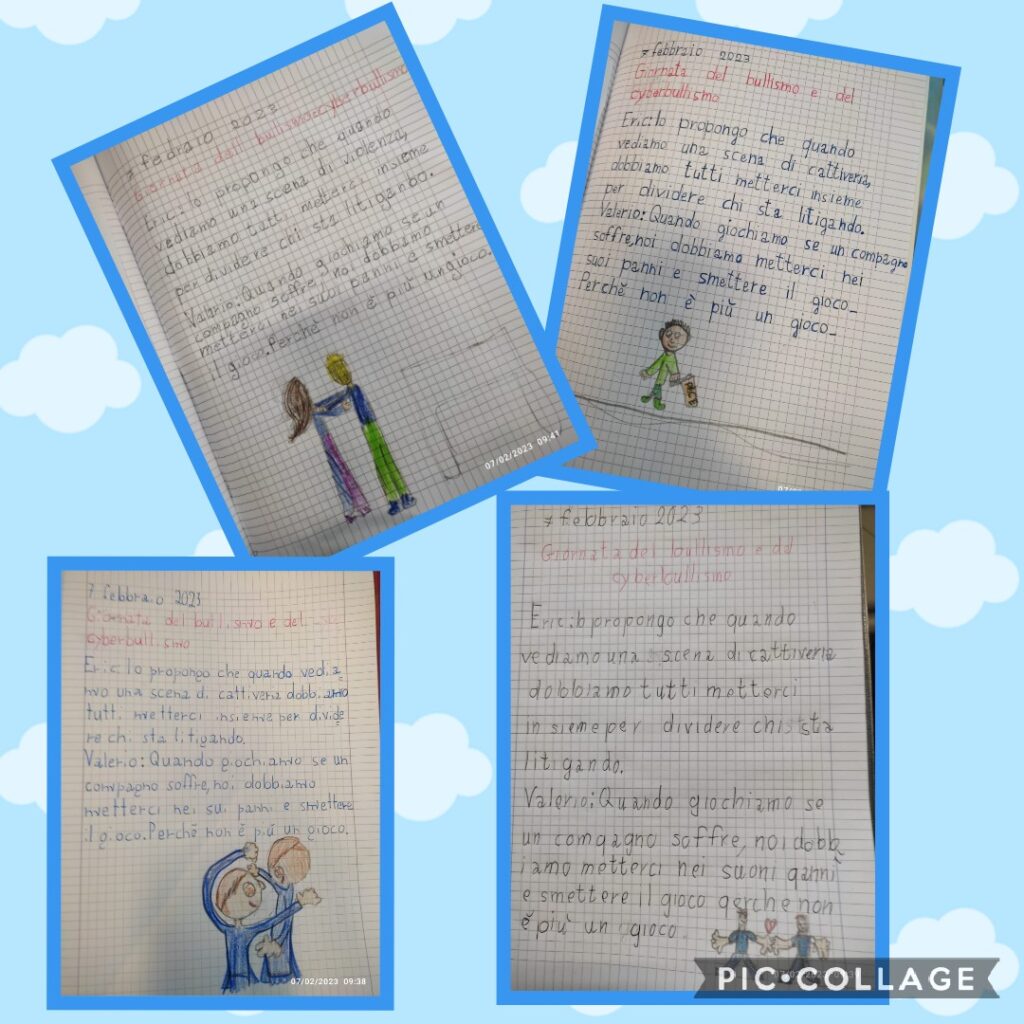 7 fedraio 2023
Giornata dell' bullismo e cyberbullismo
Eric: Io propongo che quando
vediamo una scena di violenza,
dobbiamo tutti metterci insieme
per dividere chi sta litiganbo.
Valerio: Quando giochiamo se un
compagno soffre, noi dobbiamo
metterci nei suoi panni e smettere
il gioco. Perché non è più un gioco.
07/02/2023 09:41
7 febbraio 2023
Giornata del bullismo e del
cyberbullismo
Eric: Io propongo che quando
vediamo una scena di cattiveria,
dobbiamo tutti metterci insieme
per dividere chi sta litigando.
Valerio: Quando giochiamo se un compagno
soffre, noi dobbiamo metterci nei
suoi panni e smettere il gioco_
Perchĕ non è più un gioco_
7 febbraio 2023
Giornata del bullismo e del
cyberbullismo
Eric: Io propongo che quando vedia
mo una scena di cattiveria dobbiamo
tutti metterci insieme per divide
re chi sta litigando.
Valerio: Quando giochiamo se un
compagno soffre, noi dobbiamo
metterci nei sui panni e smettere
il gioco. Perchĕ non è più un gioco.
07/02/2023 09:38
7 febbraio 2023
Giornata del bullismo e del
cyberbullismo
Eric: Io propongo che quando
vediamo una scena di cattiveria
dobbiamo tutti metterci
insieme per dividere chi sta
litigando.
Valerio: Quando giochiamo se
un comqagno soffre, noi dobb
iamo metterci nei suoni qanni
e smettere il gioco qerche non
è più un gioco.
PIC•COLLAGE